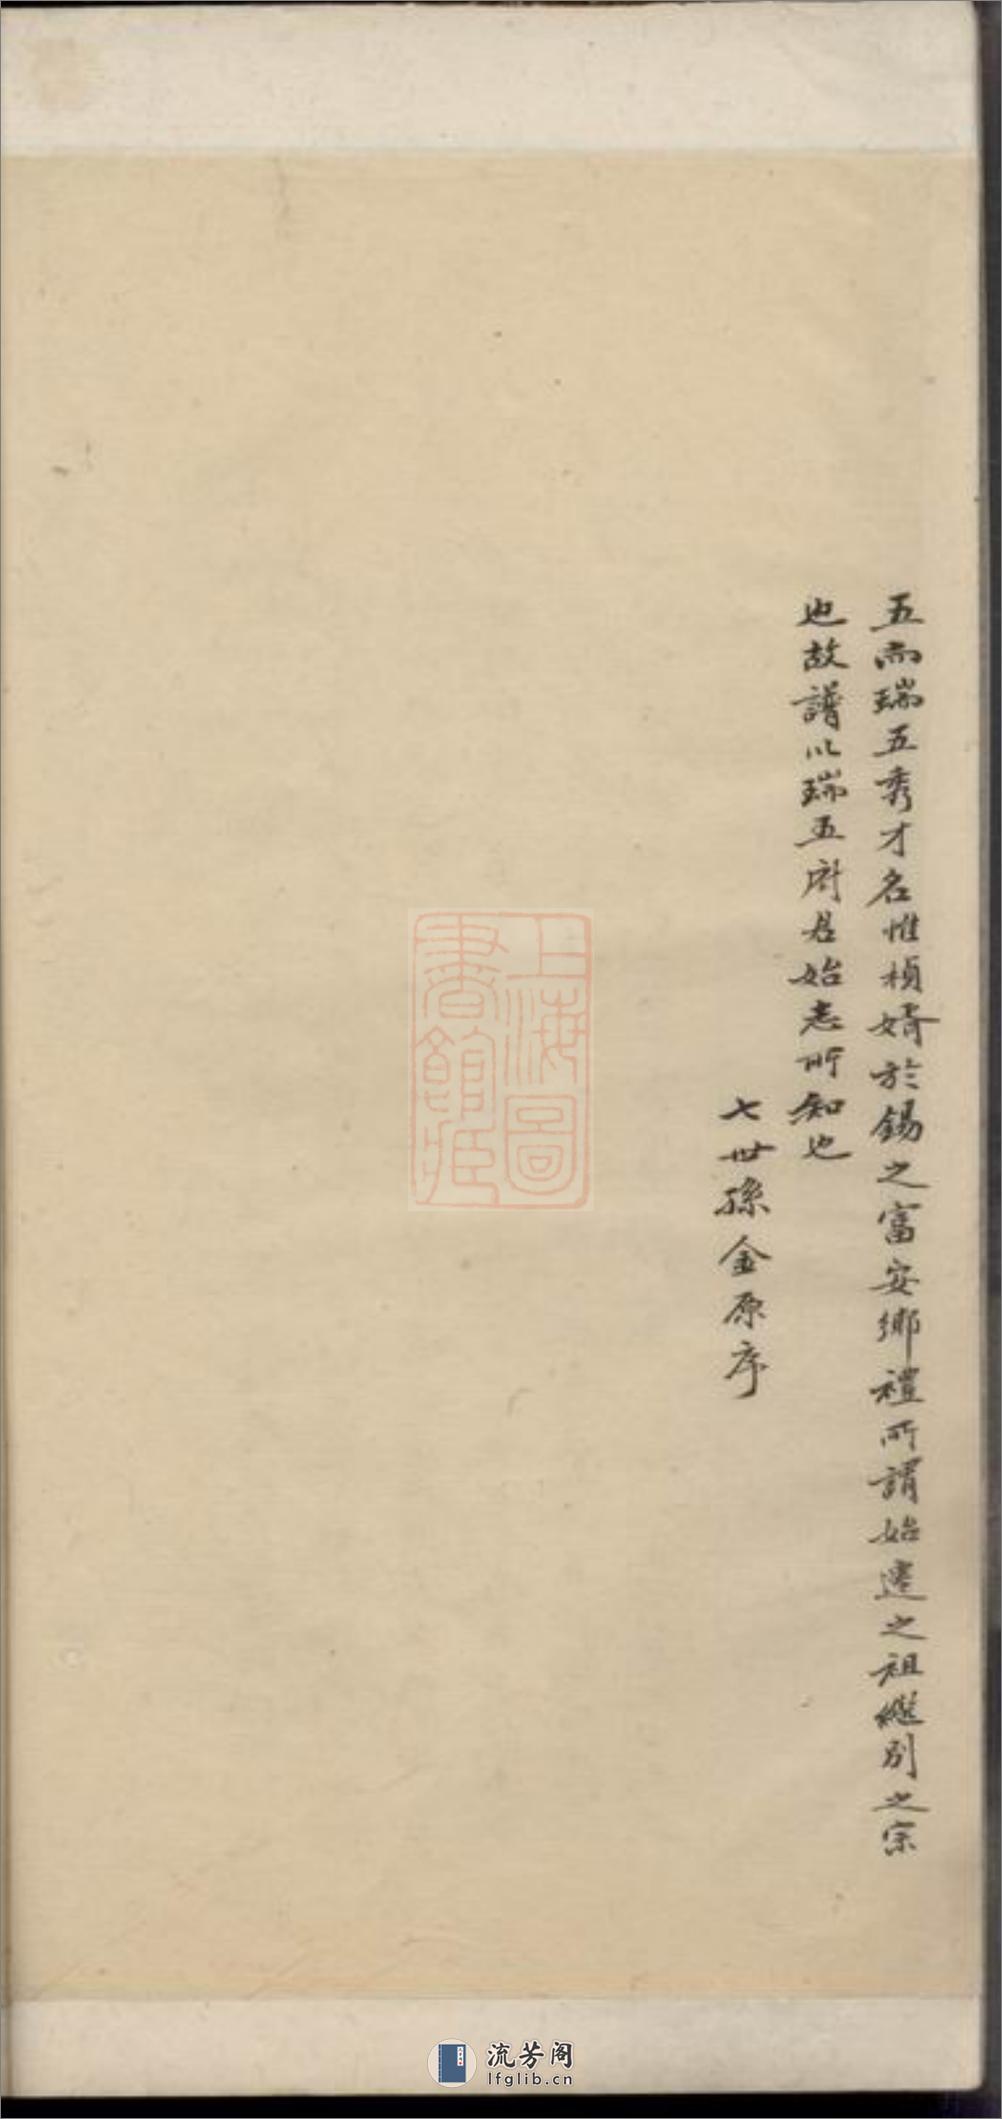 五而瑞五秀才名惟楨婿於錫之富安鄉禮所謂始遷之祖繼別之宗
也故譜以瑞五府君始志所知也
七世孫金原序
上海圖
書館藏
流芳阁
lfglib.cn